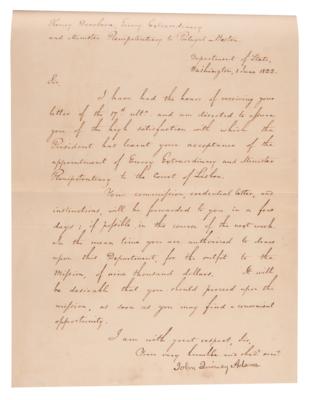 Henry Dearborn, Envoy Extraordinary
and Minister Plenipotentiary to Portugal
Department of State,
Washington, 1 June 1822.
Sir
I have had the honor of receiving your
letter of the 17th ulto and am directed to assure
you of the high satisfaction with which the
President has learnt your acceptance of the
appointment of Envoy Extraordinary and Minister
Plenipotentiary to the Court of Lisbon.
Your commission, credential letter, and
instructions, will be forwarded to you in a few
days; if possible, in the course of the next week.
In the mean time you are authorised to draw
upon this Department, for the outfit to the
Mission, of nine thousand dollars. It will
be desirable that you should proceed upon the
mission, as soon as you may find a convenient
opportunity.
I am with great respect, Sir,
Your very humble and obedt servt
John Quincy Adams